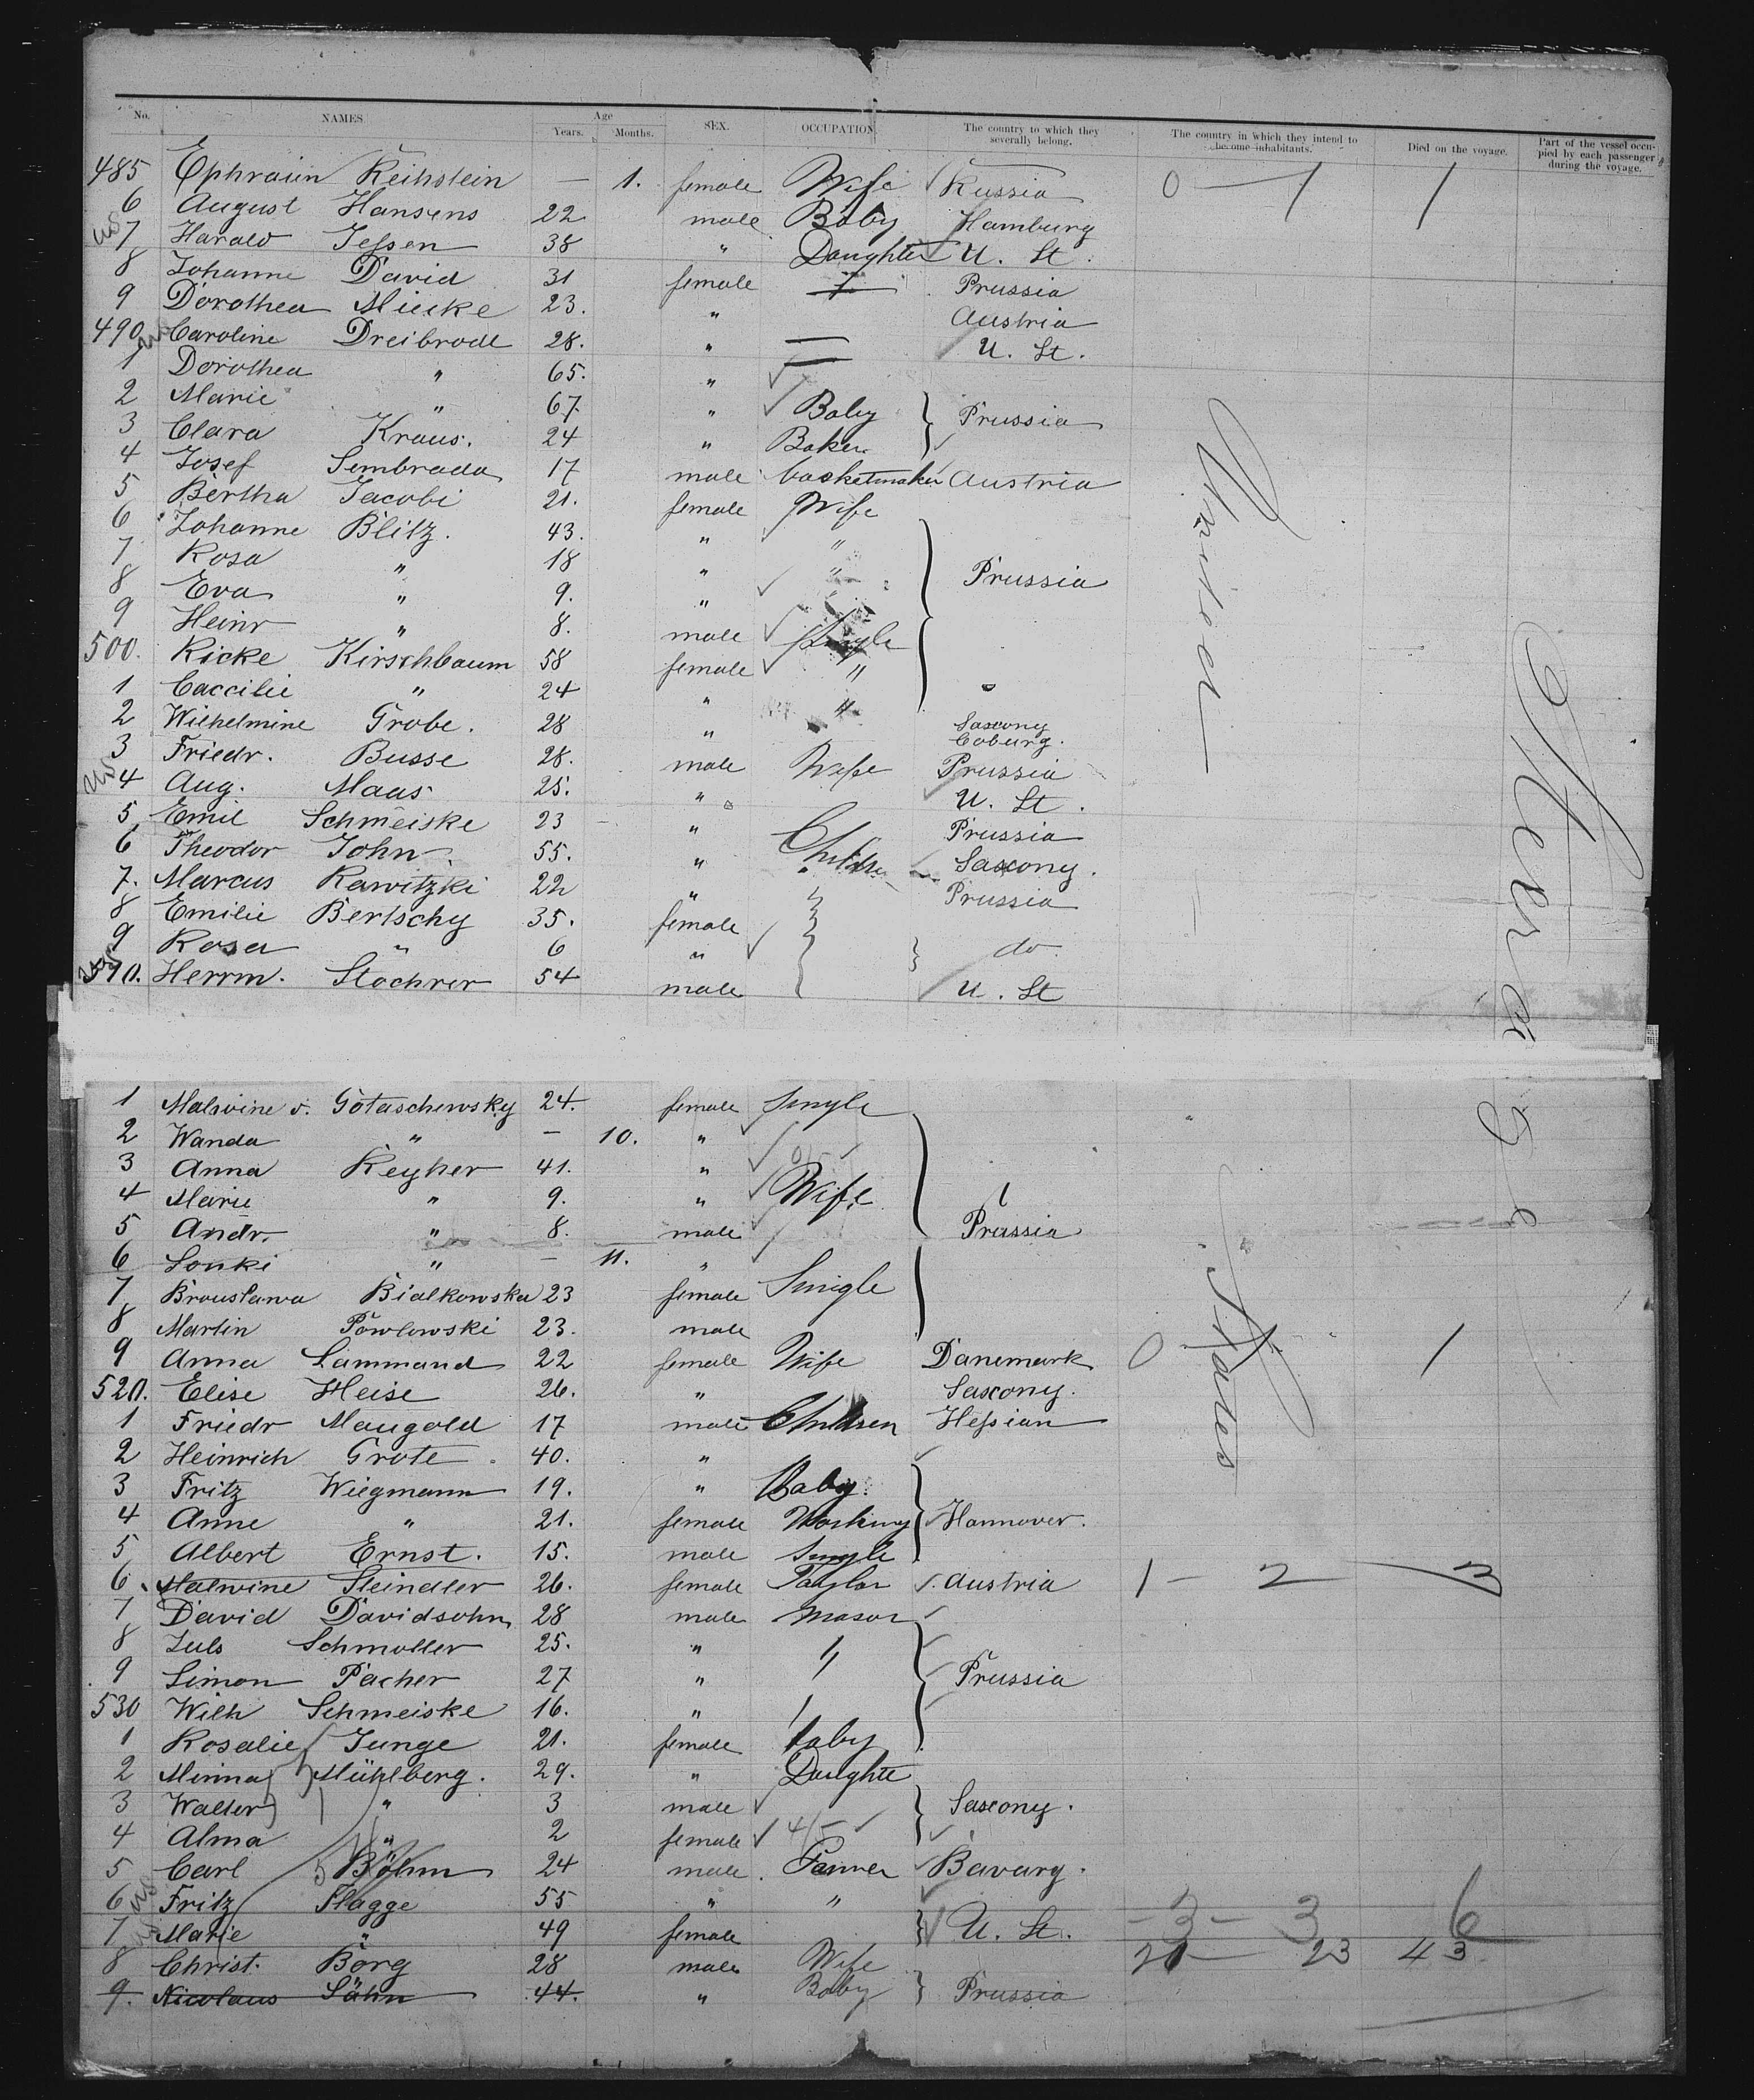 No. NAMES Age Years. Months. SEX. OCCUPATION. The country to which they severally belong. The country in which they intend to become inhabitants. Died on the voyage. Part of the vessel occupied by each passenger during the voyage.
485 Ephraim Reihstein — 1. female Wife Russia 0 — 1 1
6 August Hansens 22 male Baby Hamburg
us 7 Harald Jessen 38 " Daughter U. St.
8 Johanne David 31 female Prussia
9 Dorothea Miecke 23. " Austria
490 Caroline Dreibrodt 28. " — U. St.
1 Dorothea " 65. " —
2 Marie " 67 " Baby } Prussia
3 Clara Kraus. 24 " Baker
4 Josef Sembrada 17 male basketmaker Austria
5 Bertha Jacobi 21. female Wife
6 Johanne Blitz. 43. " "
7 Rosa " 18 " " } Prussia
8 Eva " 9. "
9 Heinr " 8. male Single
500. Ricke Kirschbaum 58 female "
1 Caecilie " 24 " "
2 Wilhelmine Grobe. 28 " Saxony Coburg.
3 Friedr. Busse 28. male Wife Prussia
us 4 Aug. Maas 25. " U. St.
5 Emil Schmeiske 23 — " Prussia
6 Theodor John 55. " Children Saxony.
7. Marcus Rawitzki 22 " Prussia
8 Emilie Bertschy 35. female
9 Rosa " 6 " } do.
510. Herrm. Stochrer 54 male U. St
United
Steerage
1 Malwine v. Gotaschewsky 24. female Single
2 Wanda " — 10. "
3 Anna Reyher 41. "
4 Marie " 9. " Wife
5 Andr. " 8. male Prussia
6 Lonki " — 11. "
7 Brouslawa Bialkowska 23 female Single
8 Martin Powlowski 23. male
9 Anna Lammand 22 female Wife Danemark 0 1
520. Elise Heise 26. " Saxony.
1 Friedr Maugold 17 male Children Hessian
2 Heinrich Grote 40. "
3 Fritz Wiegmann 19. " Baby.
4 Anne " 21. female Working Hannover.
5 Albert Ernst. 15. male Single
6 Malwine Steindler 26. female Taylor Austria 1 — 2 — 3
7 David Davidsohn 28 male Mason
8 Juls Schmoller 25. " "
9 Simon Pacher 27 " Prussia
530 Wilh Schmeiske 16. "
1 Rosalie Junge 21. female baby
2 Minna Mühlberg. 29. " Daughte
3 Walter " 3 male } Saxony.
4 Alma " 2 female
5 Carl Böhm 24 male Farmer Bavary.
us 6 Fritz Flagge 55 " "
us 7 Marie " 49 female } U. St. — 3 — 3 6
8 Christ. Borg 28 male Wife 20 — 23 43
9. Nicolaus Sähn 44. " Baby } Prussia
States